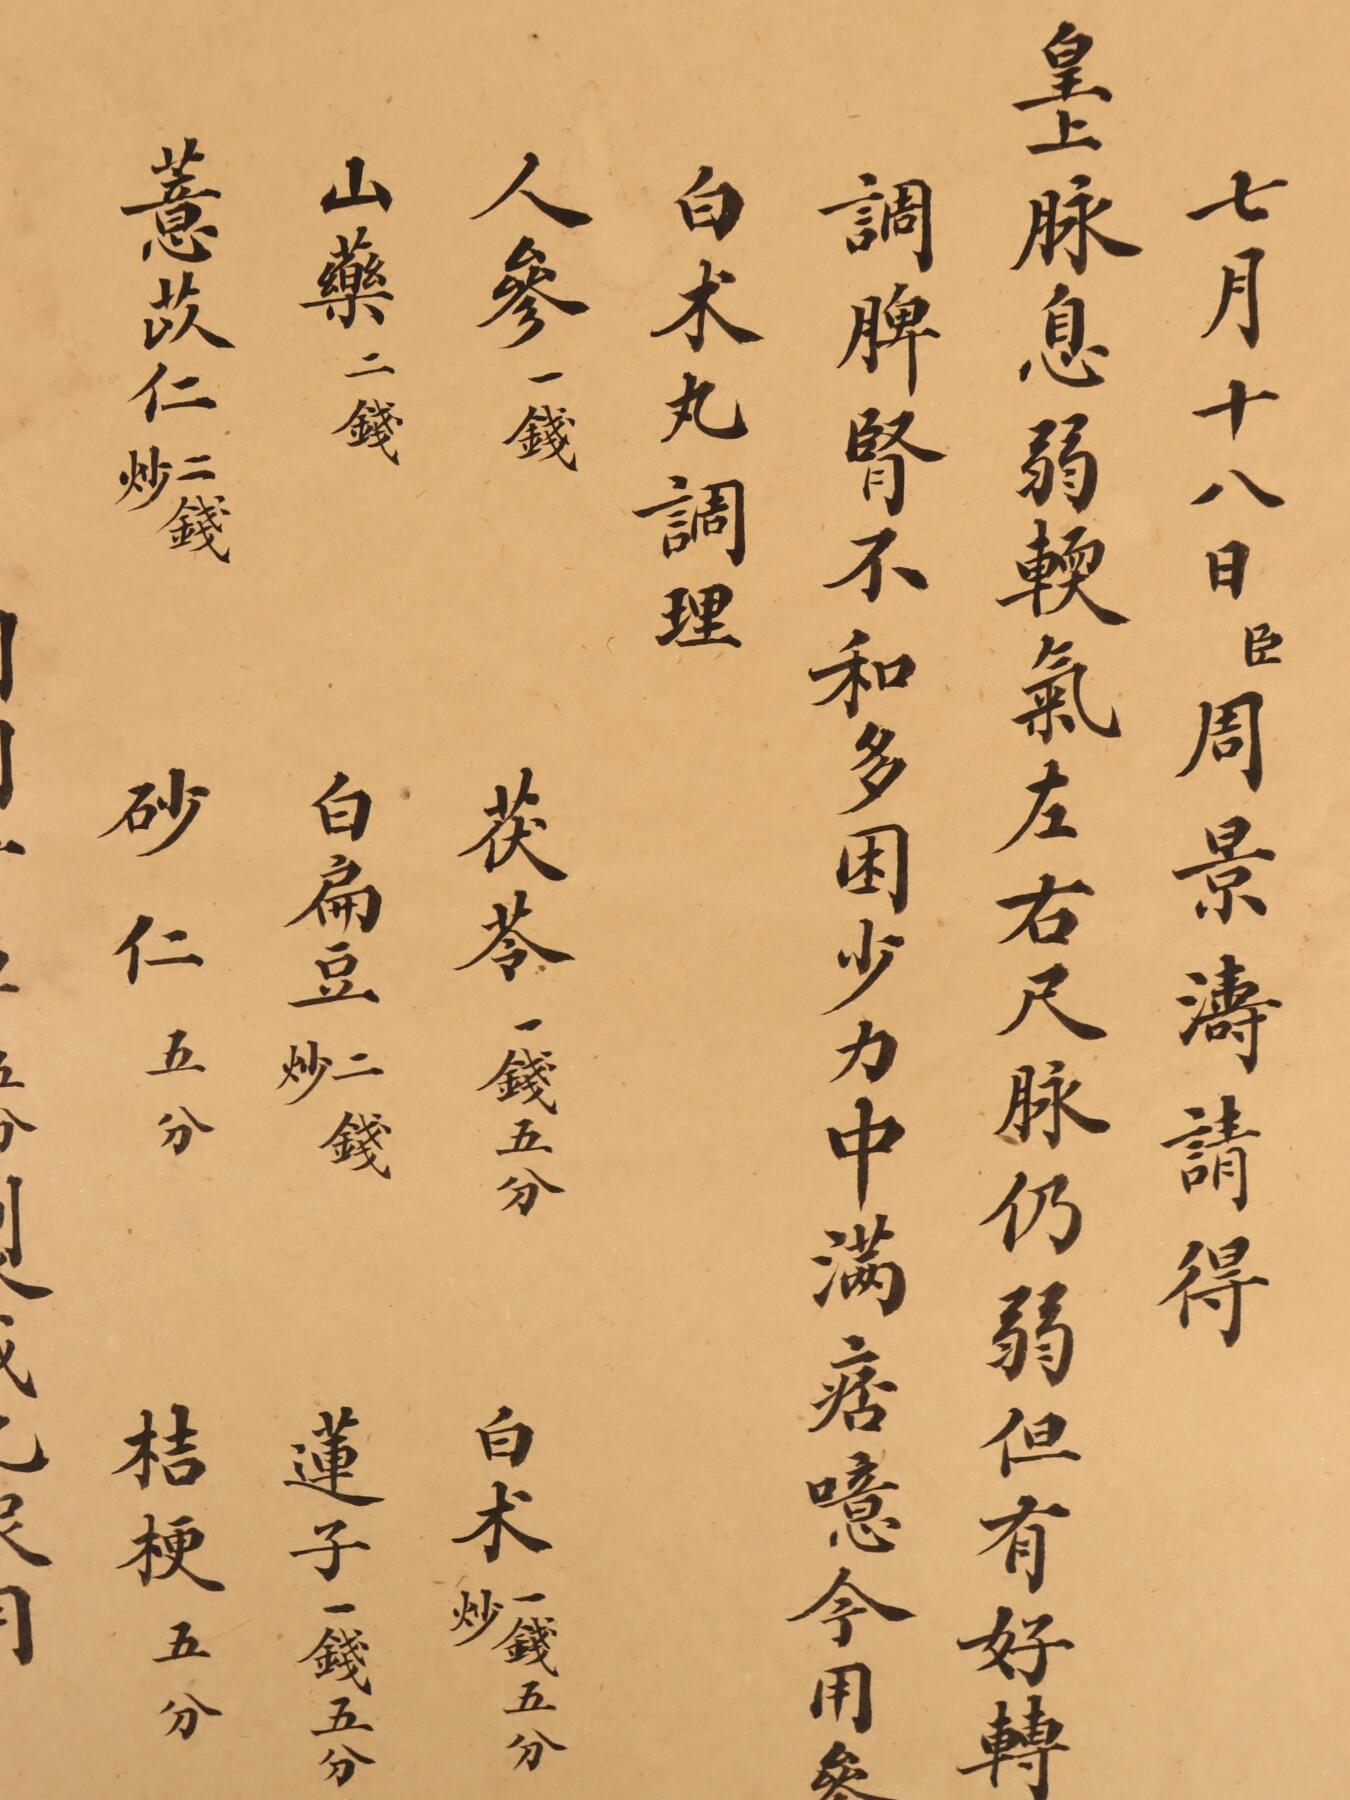 七月十八日臣周景濤請得
皇上脉息弱輭氣左右尺脉仍弱但有好轉
調脾腎不和多困少力中滿痞噫今用參
白术丸調理
人參一錢 茯苓一錢五分 白术一錢五分炒
山藥二錢 白扁豆二錢炒 蓮子一錢五分
薏苡仁二錢炒 砂仁五分 桔梗五分